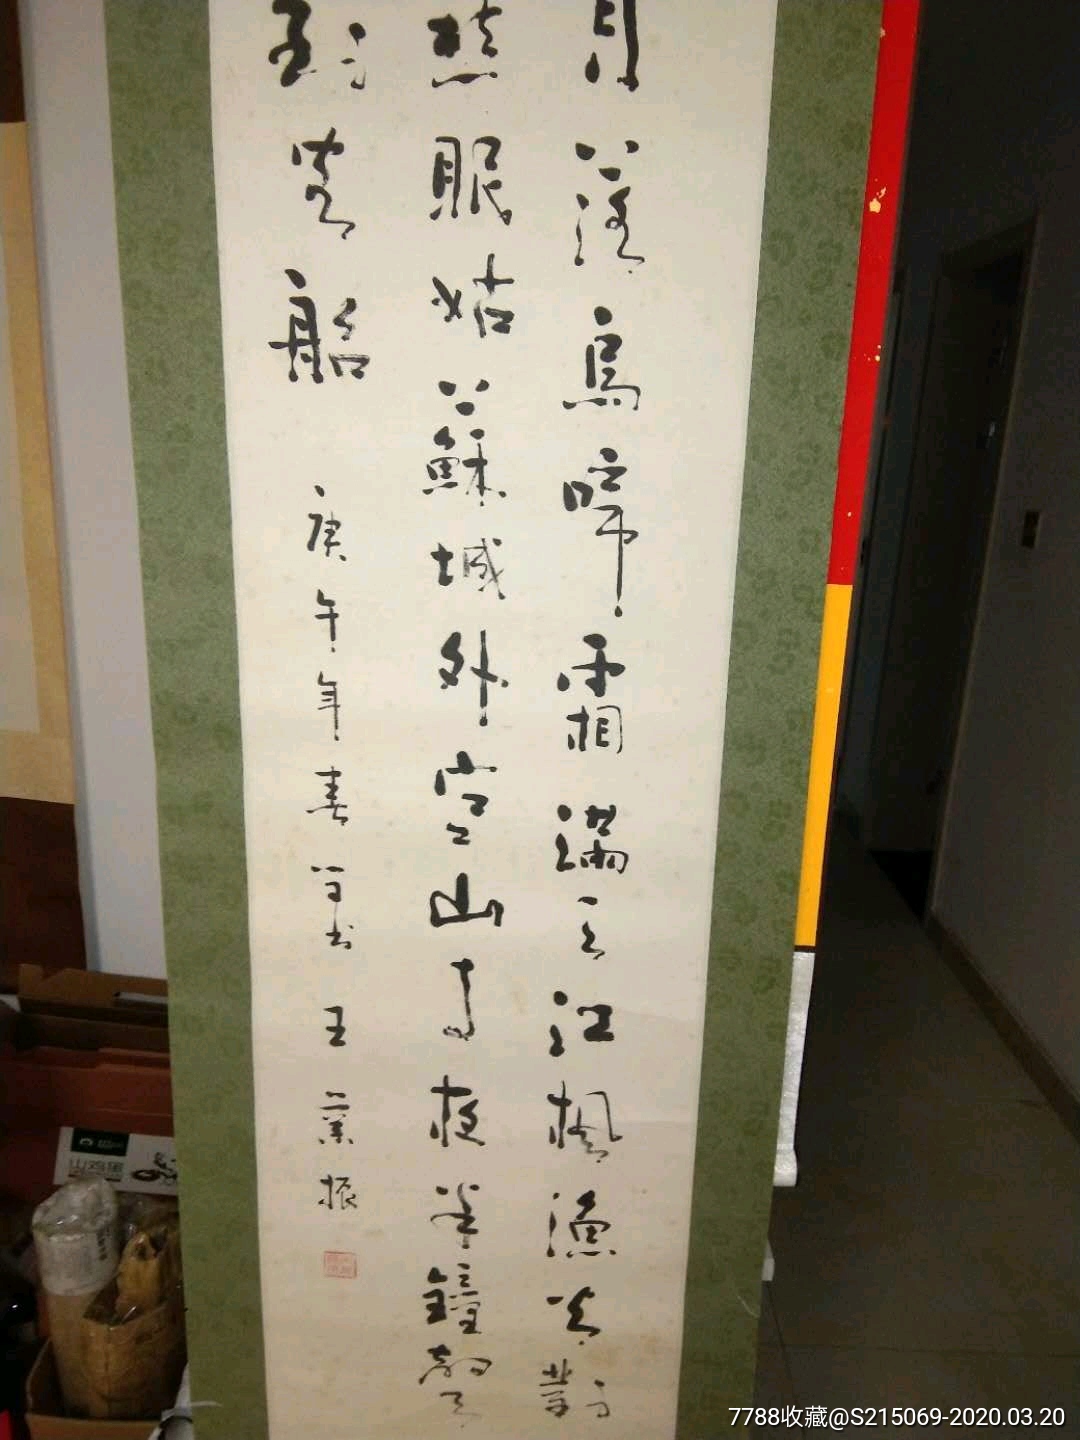 月落烏啼霜滿天江楓漁火對
愁眠姑蘇城外寒山寺夜半鐘聲
到客船
庚午年春書 王振
7788收藏@S215069-2020.03.20